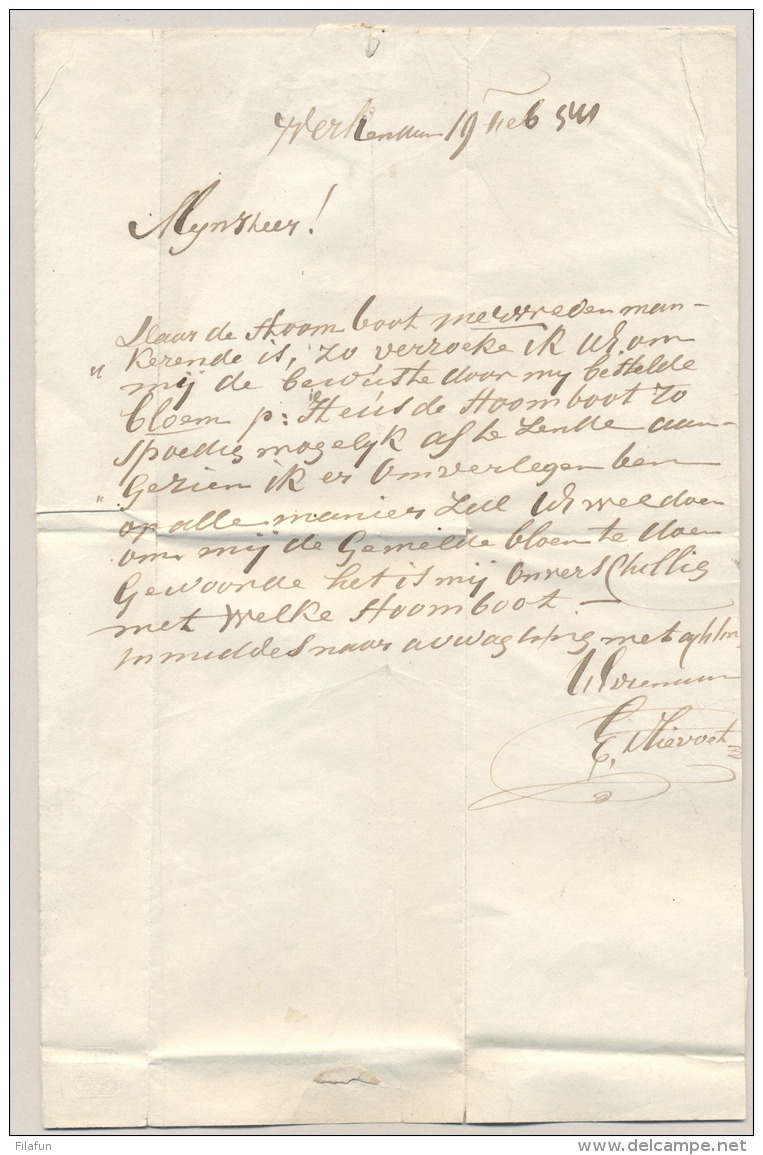 Werkendam 19 Feb 54
Mynheer!
Daar de Stoomboot merwede man-
„ kerende is, zo verzoeke ik UE om
mij de bewuste door my bestelde
bloem p: Heusde Stoomboot zo
spoedig mogelyk af te Zende aan-
„ Gezien ik er om verlegen ben
op alle manier Zul UE wel doen
om mij de Gemelde bloem te doen
Gewoorde het is mij onverschillig
met Welke Stoomboot. —
inmiddels naar avwagting met
UEdienaar
Filafun
www.delcampe.net